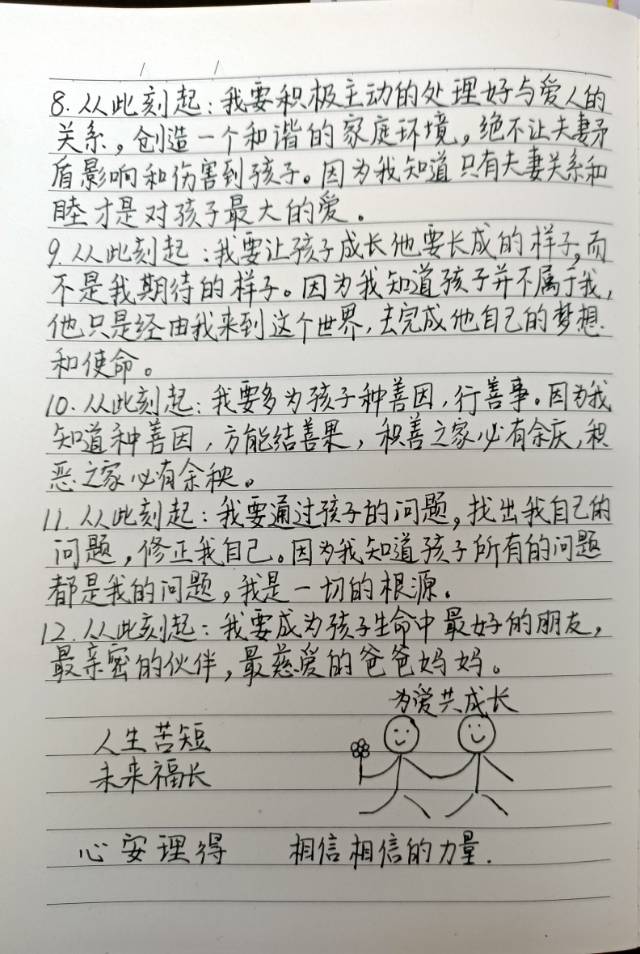 8.从此刻起：我要积极主动的处理好与爱人的
关系，创造一个和谐的家庭环境，绝不让夫妻矛
盾影响和伤害到孩子。因为我知道只有夫妻关系和
睦才是对孩子最大的爱。
9.从此刻起：我要让孩子成长他要长成的样子，而
不是我期待的样子。因为我知道孩子并不属于我，
他只是经由我来到这个世界，去完成他自己的梦想
和使命。
10.从此刻起：我要多为孩子种善因，行善事。因为我
知道种善因，方能结善果，积善之家必有余庆，积
恶之家必有余秧。
11.从此刻起：我要通过孩子的问题，找出我自己的
问题，修正我自己。因为我知道孩子所有的问题
都是我的问题，我是一切的根源。
12.从此刻起：我要成为孩子生命中最好的朋友，
最亲密的伙伴，最慈爱的爸爸妈妈。
为爱共成长
人生苦短
未来福长
心安理得 相信相信的力量.